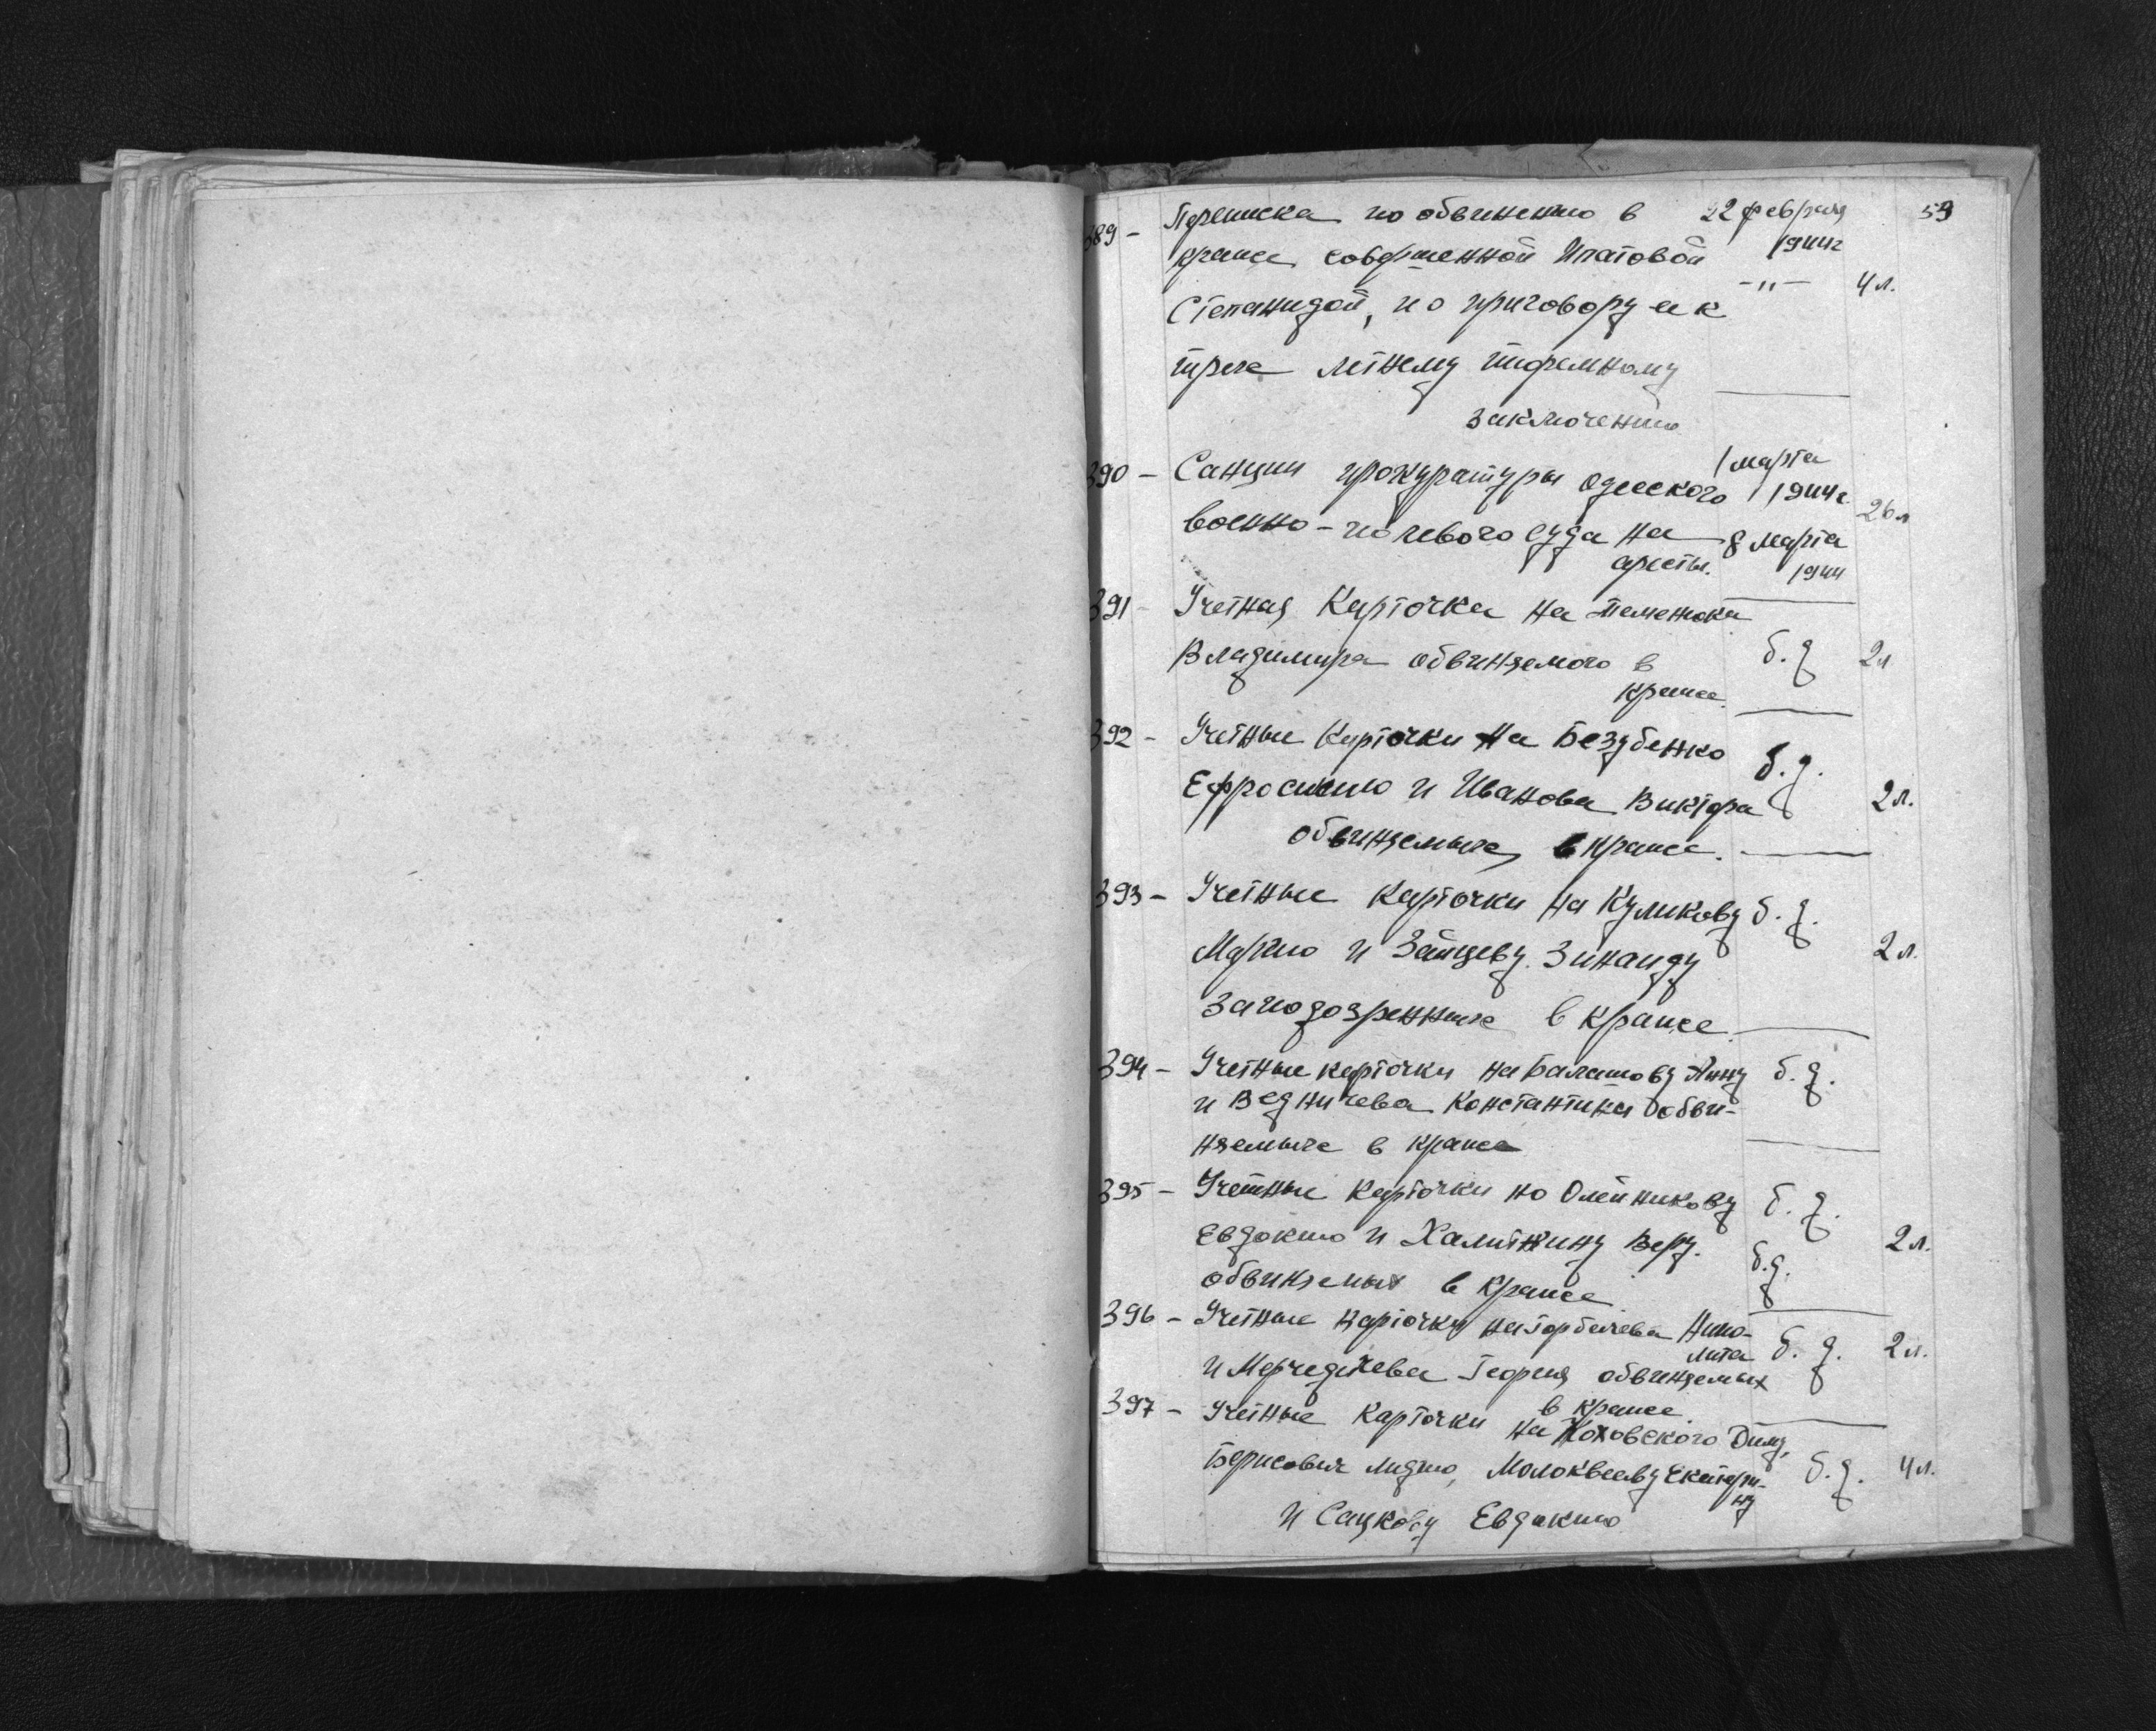 59
389 - Переписка по обвинению в 22 февраля
краже совершенной Ипатовой 1944г
Степанидой, по приговору ее к -"- 4 л.
трех летнему тюремному
заключению
390 - Санкции прокуратуры Одесского 1 марта 1944г.
военно-полевого суда на 8 марта 26 л
аресты. 1944
391 - Учетная карточка на
Владимира обвиняемого в б.д 2л
краже.
392 - Учетные карточки на Беззубенко б.д.
Ефросинию и Иванова Виктора 2л.
обвиняемых в краже.
393 - Учетные карточки на Куликову б.д.
Марию и Зайцеву Зинаиду 2л.
заподозренных в краже
394 - Учетные карточки на Балашову Анну б.д.
и Константина обви-
няемых в краже
395 - Учетные карточки на Олейникову б.д.
Евдокию и Халиткину Веру. 2л.
обвиняемых в краже б.д.
396 - Учетные карточки на Горбачева
лита б.д. 2л.
и Георгия обвиняемых
в краже.
397 - Учетные карточки на Коховского Диму,
Борисевич Лидию, Екатери- б.д. 4л.
ну
и Сацкову Евдокию